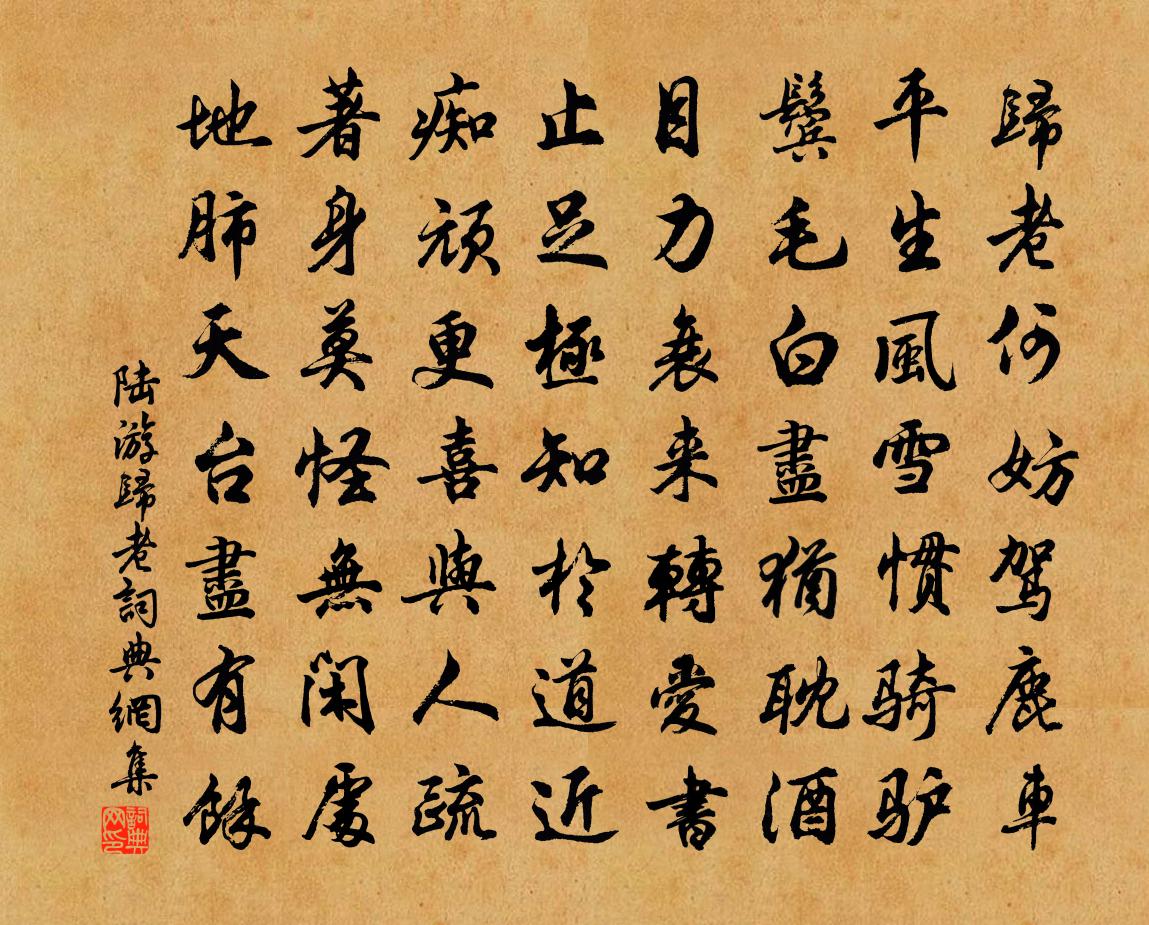 歸老何妨駕鹿車
平生風雪慣騎驴
鬢毛白盡猶耽酒
目力衰来轉愛書
止足極知於道近
痴頑更喜與人疏
著身莫怪無閑處
地肺天台盡有餘
陆游歸老詞典網集
詞典网印